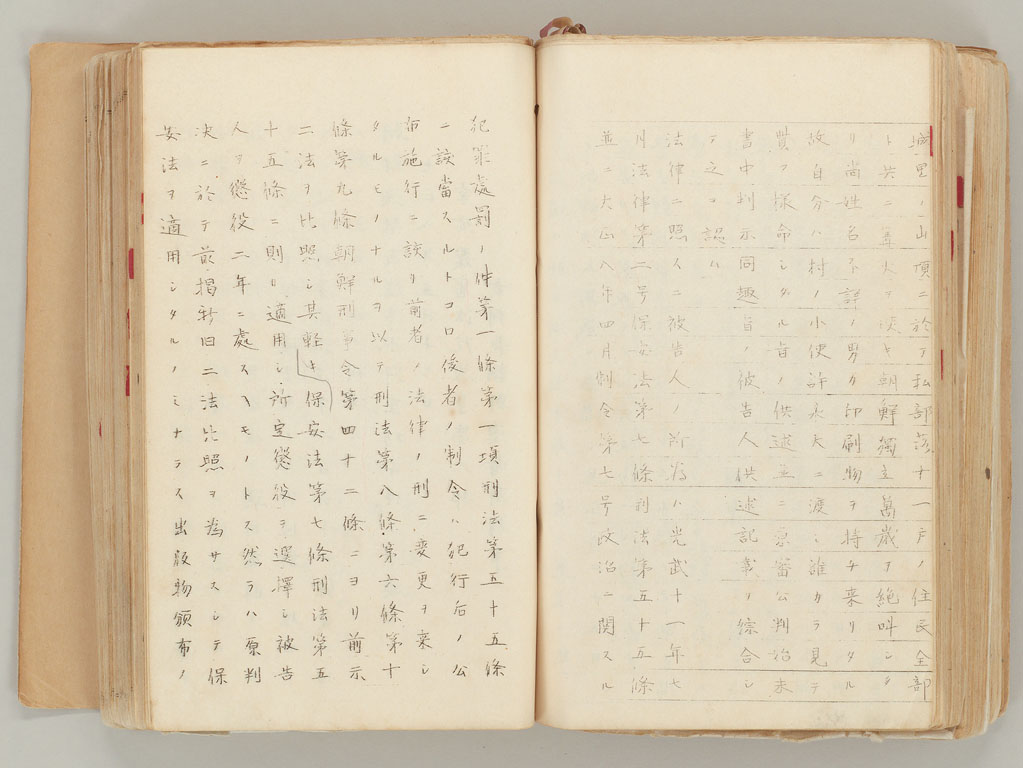 城里ノ山頂ニ於テ払部落十一戸ノ住民全部
ト共ニ篝火ヲ焚キ朝鮮獨立萬歳ヲ絶叫シ
リ尚姓名不詳ノ男カ印刷物ヲ持チ来リタル
故自分ハ村ノ小使許永大ニ渡シ誰カラ見テ
贊ヲ様命シタル旨ノ供述並ニ原審公判始末
書中判示同趣旨ノ被告人供述記載ノ綜合シ
テ之ヲ認ム
法律ニ照スニ被告人ノ所為ハ光武十一年七
月法律第二号保安法第七條刑法第五十五條
並ニ大正八年四月制令第七号政治ニ関スル
犯罪處罰ノ件第一條第一項刑法第五十五條
ニ該當スルトコロ後者ノ制令ハ犯行后ノ公
布施行ニ該リ前者ノ法律ノ刑ニ変更ヲ来シ
タルモノナルヲ以テ刑法第八條第六條第十
條第九條朝鮮刑事令第四十二條ニヨリ前示
二法ヲ比照シ其輕キ保安法第七條刑法第五
十五條ニ則リ適用シ所定懲役ヲ選擇シ被告
人ヲ懲役二年ニ處スヘモノトス然ラハ原判
決ニ於テ前掲新旧二法比照ヲ為サスシテ保
安法ヲ適用シタルノミナラス出版物頒布ノ